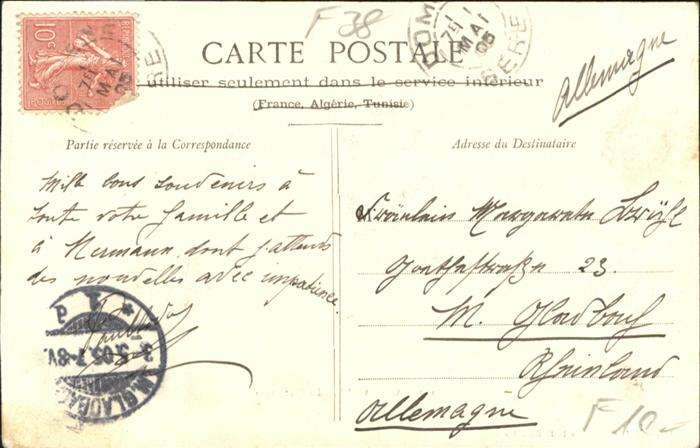 F38
CARTE POSTALE
à utiliser seulement dans le service intérieur
(France, Algérie, Tunisie)
Allemagne
Partie réservée à la Correspondance
Mille bons souvenirs à
toute votre famille et
à Hermann dont j'attends
des nouvelles avec impatience.
Adresse du Destinataire
Fräulein Margarete
Goethestraße 23.
M. Gladbach
Rheinland
Allemagne
F10-
10
POSTES
MAI
05
MAI
05
ISERE
3.5.05.7-8V.
M. GLADBACH